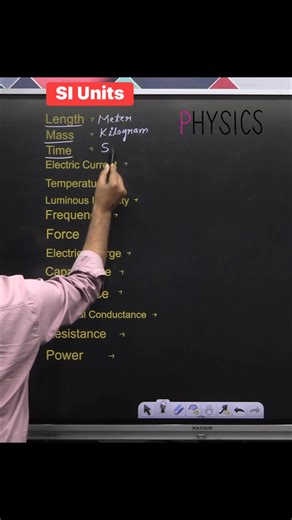 SI Units
PHYSICS
Length → Meter
Mass → Kilogram
Time → S
Electric Current →
Temperatu
Luminous I ity →
Frequen →
Force →
Electri rge →
Capa e →
ce →
l Conductance →
esistance →
Power →